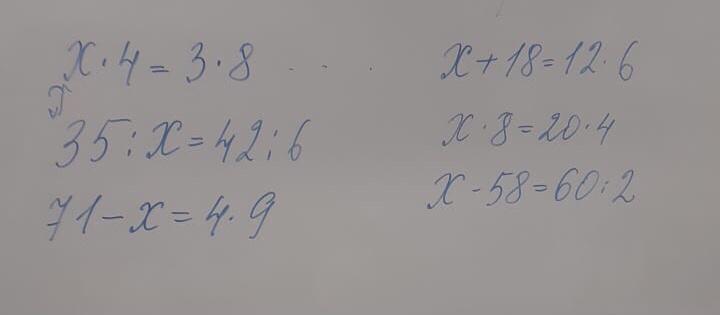 x·4=3·8
35:x=42:6
71-x=4·9
x+18=12·6
x·8=20·4
x-58=60:2